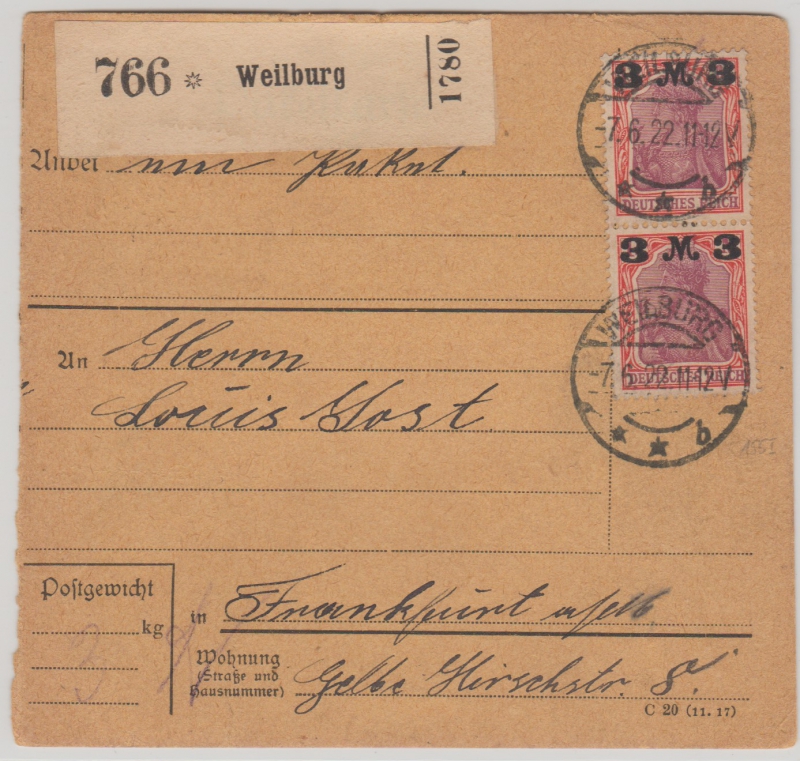 766 * Weilburg
1780
3 M 3
WEILBURG
-7.6.22.11-12V
* * b
DEUTSCHES REICH
3 M 3
WEILBURG
-7.6.22.11-12V
* * b
DEUTSCHES REICH
Anbei ein Paket.
An Herrn
Louis Jost.
155 I
Postgewicht
3 kg
in Frankfurt
Wohnung
(Straße und
Hausnummer) Gelbe Hirschstr. 8
C 20 (11. 17)